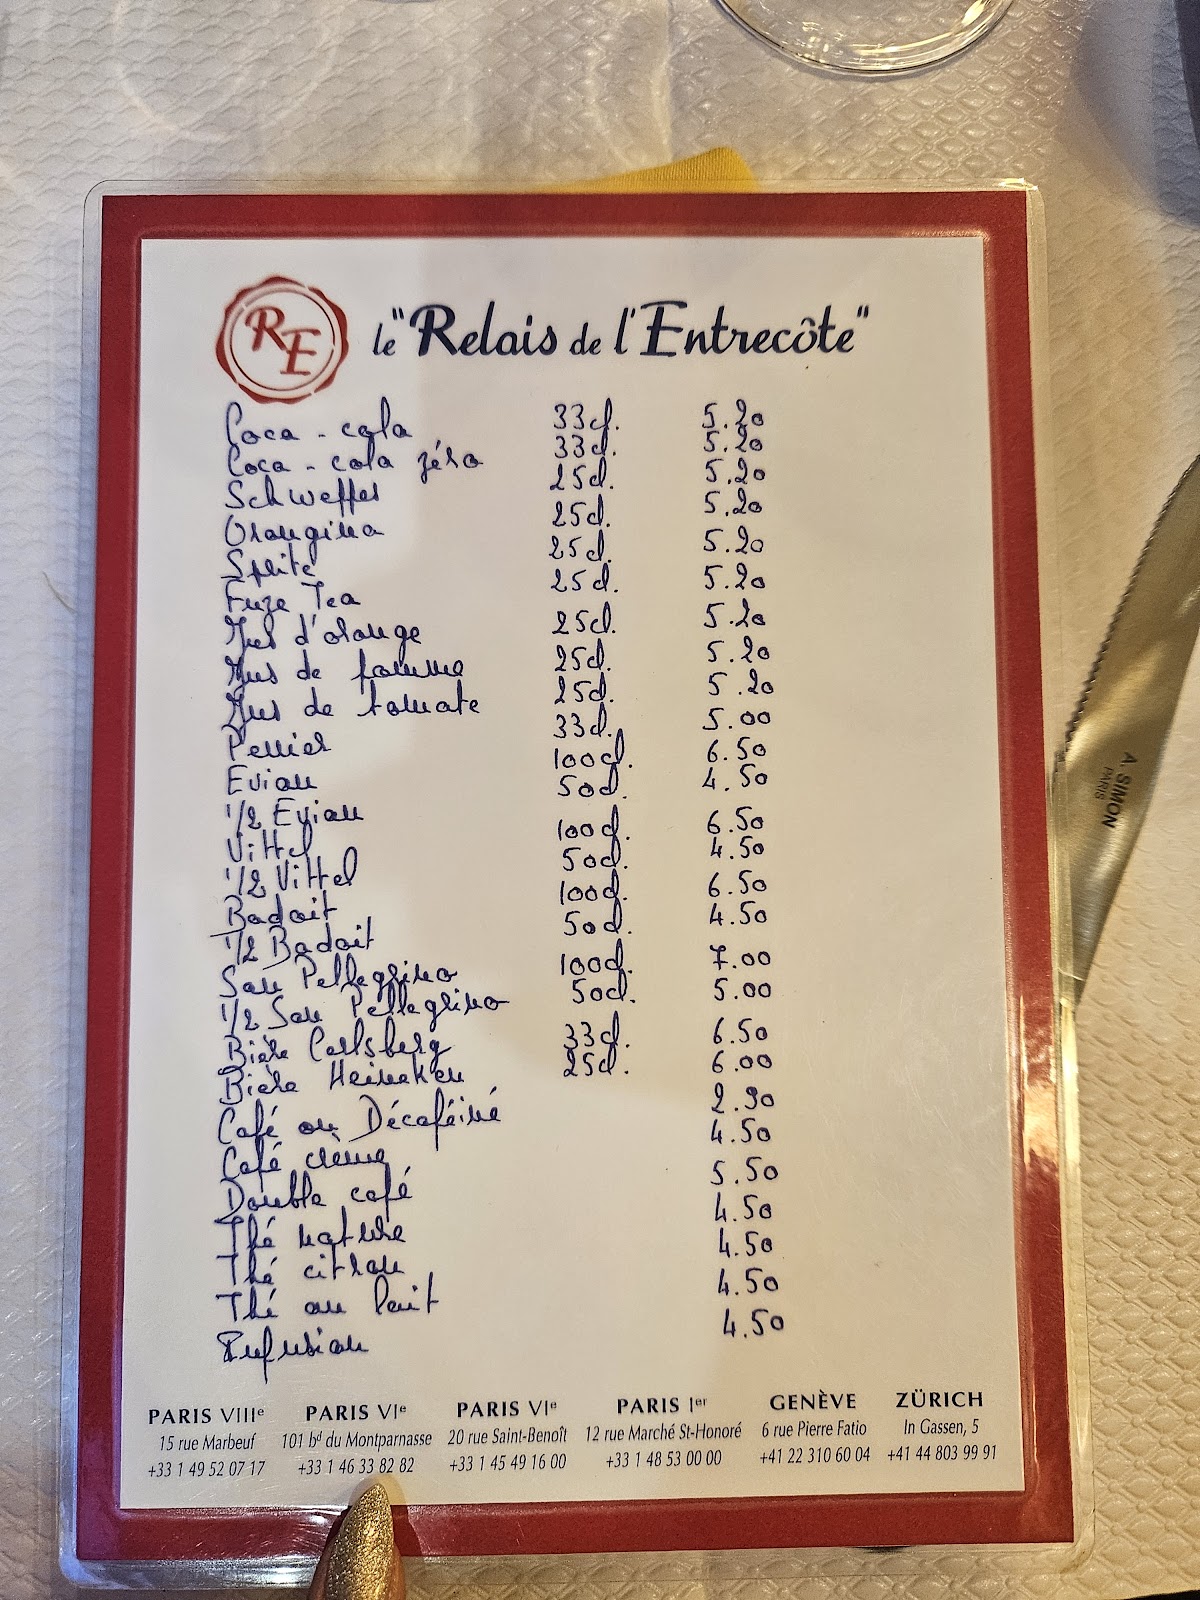 RE
le "Relais de l'Entrecôte"
Coca - cola 33cl. 5.20
Coca - cola zéro 33cl. 5.20
Schweppes 25cl. 5.20
Orangina 25cl. 5.20
Sprite 25cl. 5.20
Fuze Tea 25cl. 5.20
Jus d'orange 25cl. 5.20
Jus de pomme 25cl. 5.20
Jus de tomate 25cl. 5.20
Perrier 33cl. 5.00
Evian 100cl. 6.50
1/2 Evian 50cl. 4.50
Vittel 100cl. 6.50
1/2 Vittel 50cl. 4.50
Badoit 100cl. 6.50
1/2 Badoit 50cl. 4.50
San Pellegrino 100cl. 7.00
1/2 San Pellegrino 50cl. 5.00
Bière Carlsberg 33cl. 6.50
Bière Heineken 25cl. 6.00
Café ou Décaféiné 2.90
Café crème 4.50
Double café 5.50
Thé nature 4.50
Thé citron 4.50
Thé au lait 4.50
Infusion 4.50
PARIS VIIIe PARIS VIe PARIS VIe PARIS Ier GENÈVE ZÜRICH
15 rue Marbeuf 101 bd du Montparnasse 20 rue Saint-Benoît 12 rue Marché St-Honoré 6 rue Pierre Fatio In Gassen, 5
+33 1 49 52 07 17 +33 1 46 33 82 82 +33 1 45 49 16 00 +33 1 48 53 00 00 +41 22 310 60 04 +41 44 803 99 91
A. SIMON
PARIS